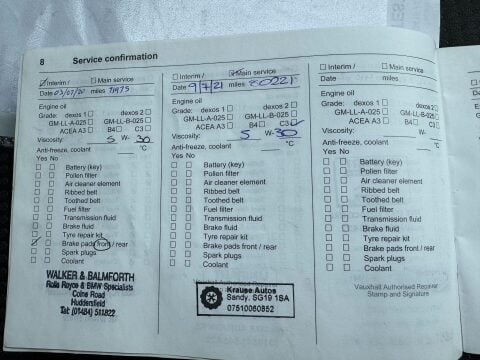 8 Service confirmation
Interim / Main service
Date 03/07/20 miles
Engine oil
Grade: dexos 1 dexos 2
GM-LL-A-025 GM-LL-B-025
ACEA A3 B4 C3
Viscosity: 5 W- 30
Anti-freeze, coolant °C
Yes No
Battery (key)
Pollen filter
Air cleaner element
Ribbed belt
Toothed belt
Fuel filter
Transmission fluid
Brake fluid
Tyre repair kit
Brake pads front / rear
Spark plugs
Coolant
WALKER & BALMFORTH
Rolls Royce & BMW Specialists
Colne Road
Huddersfield
Tel: (01484) 511822
Interim / Main service
Date 9/7/21 miles 80221
Engine oil
Grade: dexos 1 dexos 2
GM-LL-A-025 GM-LL-B-025
ACEA A3 B4 C3
Viscosity: 5 W- 30
Anti-freeze, coolant °C
Yes No
Battery (key)
Pollen filter
Air cleaner element
Ribbed belt
Toothed belt
Fuel filter
Transmission fluid
Brake fluid
Tyre repair kit
Brake pads front / rear
Spark plugs
Coolant
Krause Autos
Sandy. SG19 1SA
07510060852
Interim / Main service
Date miles
Engine oil
Grade: dexos 1 dexos 2
GM-LL-A-025 GM-LL-B-025
ACEA A3 B4 C3
Viscosity: W-
Anti-freeze, coolant °C
Yes No
Battery (key)
Pollen filter
Air cleaner element
Ribbed belt
Toothed belt
Fuel filter
Transmission fluid
Brake fluid
Tyre repair kit
Brake pads front / rear
Spark plugs
Coolant
Vauxhall Authorised Repairer
Stamp and Signature